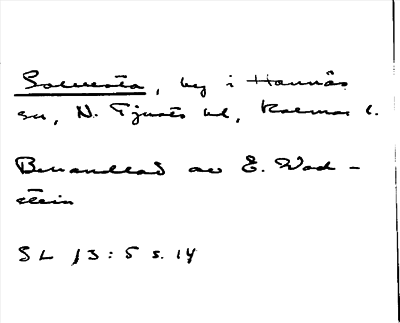 Solvesta, by i Hannäs
sn, N. Tjusts hd, Kalmar l.
Behandlad av E. Wad-
stein
SL 13:5 s. 14